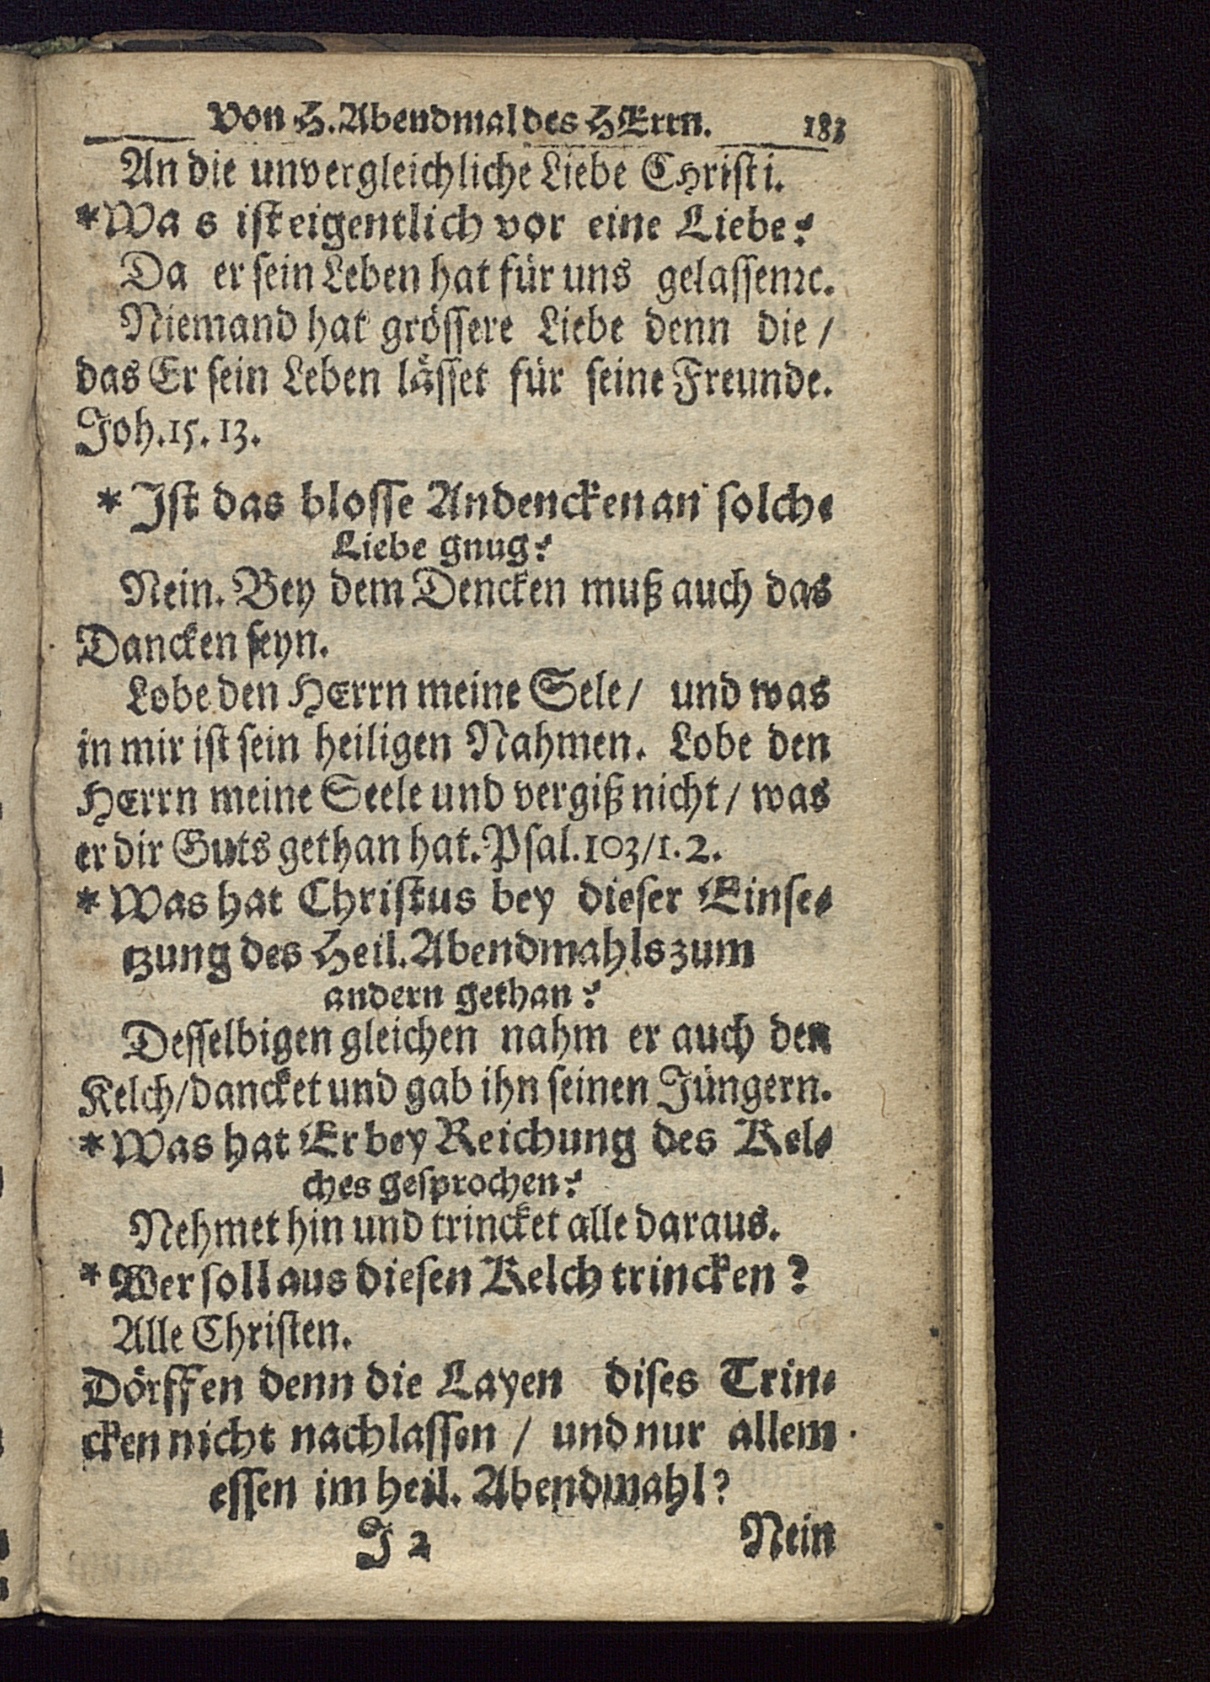 Von H. Abendmal des HErrn. 183
An die unvergleichliche Liebe CHristi.
*Wa s ist eigentlich vor eine Liebe?
Da er sein Leben hat für uns gelassen ꝛc.
Niemand hat grössere Liebe denn die /
das Er sein Leben lässet für seine Freunde.
Joh. 15. 13.
* Ist das blosse Andencken an solche
Liebe gnug?
Nein. Bey dem Dencken muß auch das
Dancken seyn.
Lobe den HErrn meine Sele / und was
in mir ist sein heiligen Nahmen. Lobe den
HErrn meine Seele und vergiß nicht / was
er dir Guts gethan hat. Psal. 103/1. 2.
* Was hat Christus bey dieser Einse-
tzung des Heil. Abendmahls zum
andern gethan?
Desselbigen gleichen nahm er auch den
Kelch / dancket und gab ihn seinen Jüngern.
* Was hat Er bey Reichung des Kel-
ches gesprochen?
Nehmet hin und trincket alle daraus.
* Wer soll aus diesen Kelch trincken?
Alle Christen.
Dörffen denn die Layen dises Trin-
cken nicht nachlassen / und nur allem
essen im heil. Abendmahl?
J 2 Nein